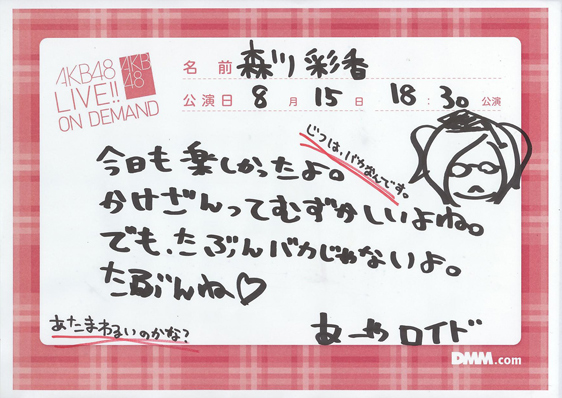 AKB48
LIVE!!
ON DEMAND
AKB
48
名前 森川彩香
公演日 8月15日 18:30公演
今日も楽しかったよ。
じつは、バカなんです。
かけざんってむずかしいよね。
でも、たぶんバカじゃないよ。
たぶんね♡
あたまわるいのかな?
あーやロイド
DMM.com